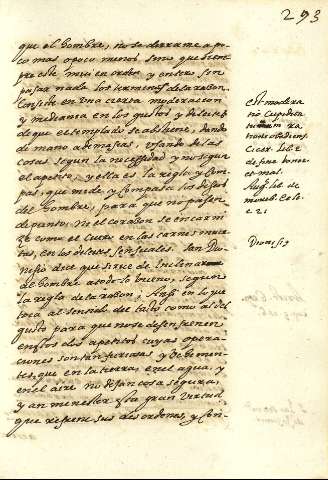 293
que el hombre, no se derrame a po-
co mas o poco menos sino que siem-
pre este, mui en orden y entero, sin
passar nada los terminos de la razon.
Consiste en una cierta moderacion
y mediania en los gustos y deleites
de que el templado se abstiene, dando
de mano a demasias, usando de las
cosas segun la necessidad y no segun
el apetito, y ella es la regla y com-
pas, que mide y compassa los deseos
del hombre, para que no passen
de punto. Ni el corazon se encarni-
ze como el Cuervo en las carnes muer-
tas, en los deleites sensuales. San Dio-
nisio dice que sirve de inclinar
al hombre a todo lo bueno, segun
la regla de la razon; Anssi en lo que
toca al sentido del tacto como al del
gusto para que no se desenfrenen
en estos dos apetitos cuyas opera-
ciones son tan furiosas y vehemen-
tes, que en la tierra, en el agua, y
en el aire no dejan cosa segura,
y an menester esta gran virtud
que refrene sus desordenes, y con-
est modera
tio cupidita
tum ra
tioni obediens.
Cicer. lib. 2
de fine bono
et mal.
Aug. lib. de
morib. Eccle.
c. 21
Dionis.